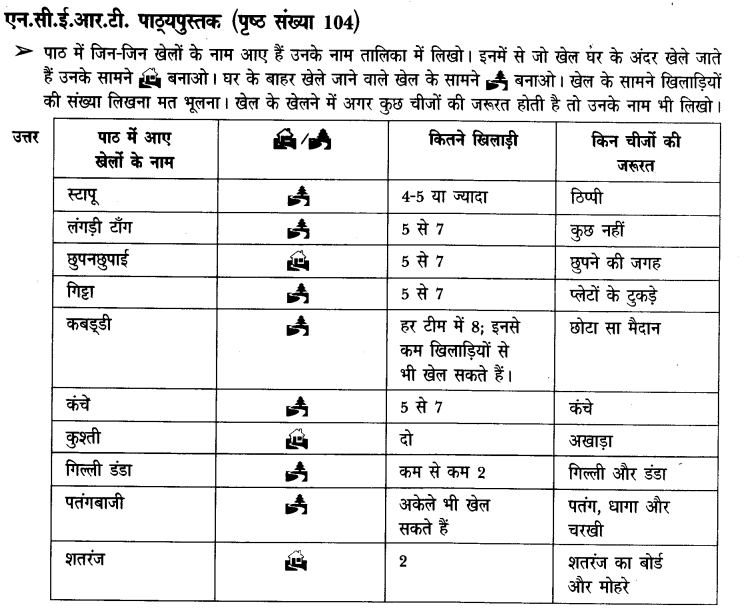 एन.सी.ई.आर.टी. पाठ्यपुस्तक (पृष्ठ संख्या 104)
➢ पाठ में जिन-जिन खेलों के नाम आए हैं उनके नाम तालिका में लिखो। इनमें से जो खेल घर के अंदर खेले जाते
हैं उनके सामने बनाओ। घर के बाहर खेले जाने वाले खेल के सामने बनाओ। खेल के सामने खिलाड़ियों
की संख्या लिखना मत भूलना। खेल के खेलने में अगर कुछ चीजों की जरूरत होती है तो उनके नाम भी लिखो।
उत्तर पाठ में आए / कितने खिलाड़ी किन चीजों की
खेलों के नाम जरूरत
स्टापू 4-5 या ज्यादा ठिप्पी
लंगड़ी टाँग 5 से 7 कुछ नहीं
छुपनछुपाई 5 से 7 छुपने की जगह
गिट्टा 5 से 7 प्लेटों के टुकड़े
कबड्डी हर टीम में 8; इनसे छोटा सा मैदान
कम खिलाड़ियों से
भी खेल सकते हैं।
कंचे 5 से 7 कंचे
कुश्ती दो अखाड़ा
गिल्ली डंडा कम से कम 2 गिल्ली और डंडा
पतंगबाजी अकेले भी खेल पतंग, धागा और
सकते हैं चरखी
शतरंज 2 शतरंज का बोर्ड
और मोहरे